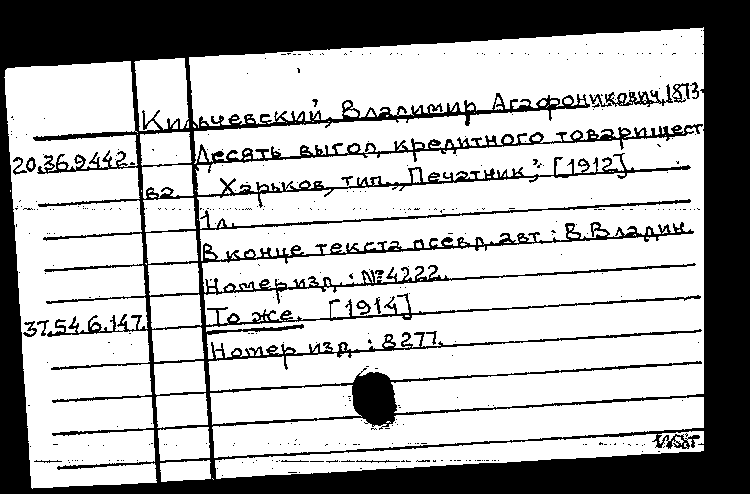 Кильчевский, Владимир Агафоникович, 1873-
20.36.9442. Десять выгод кредитного товарищест-
ва. Харьков, тип. „Печатник“, [1912].
1 л.
В конце текста псевд. авт.: В. Владин.
Номер изд.: №4222.
37.54.6.147. То же. [1914].
Номер изд.: 8277.